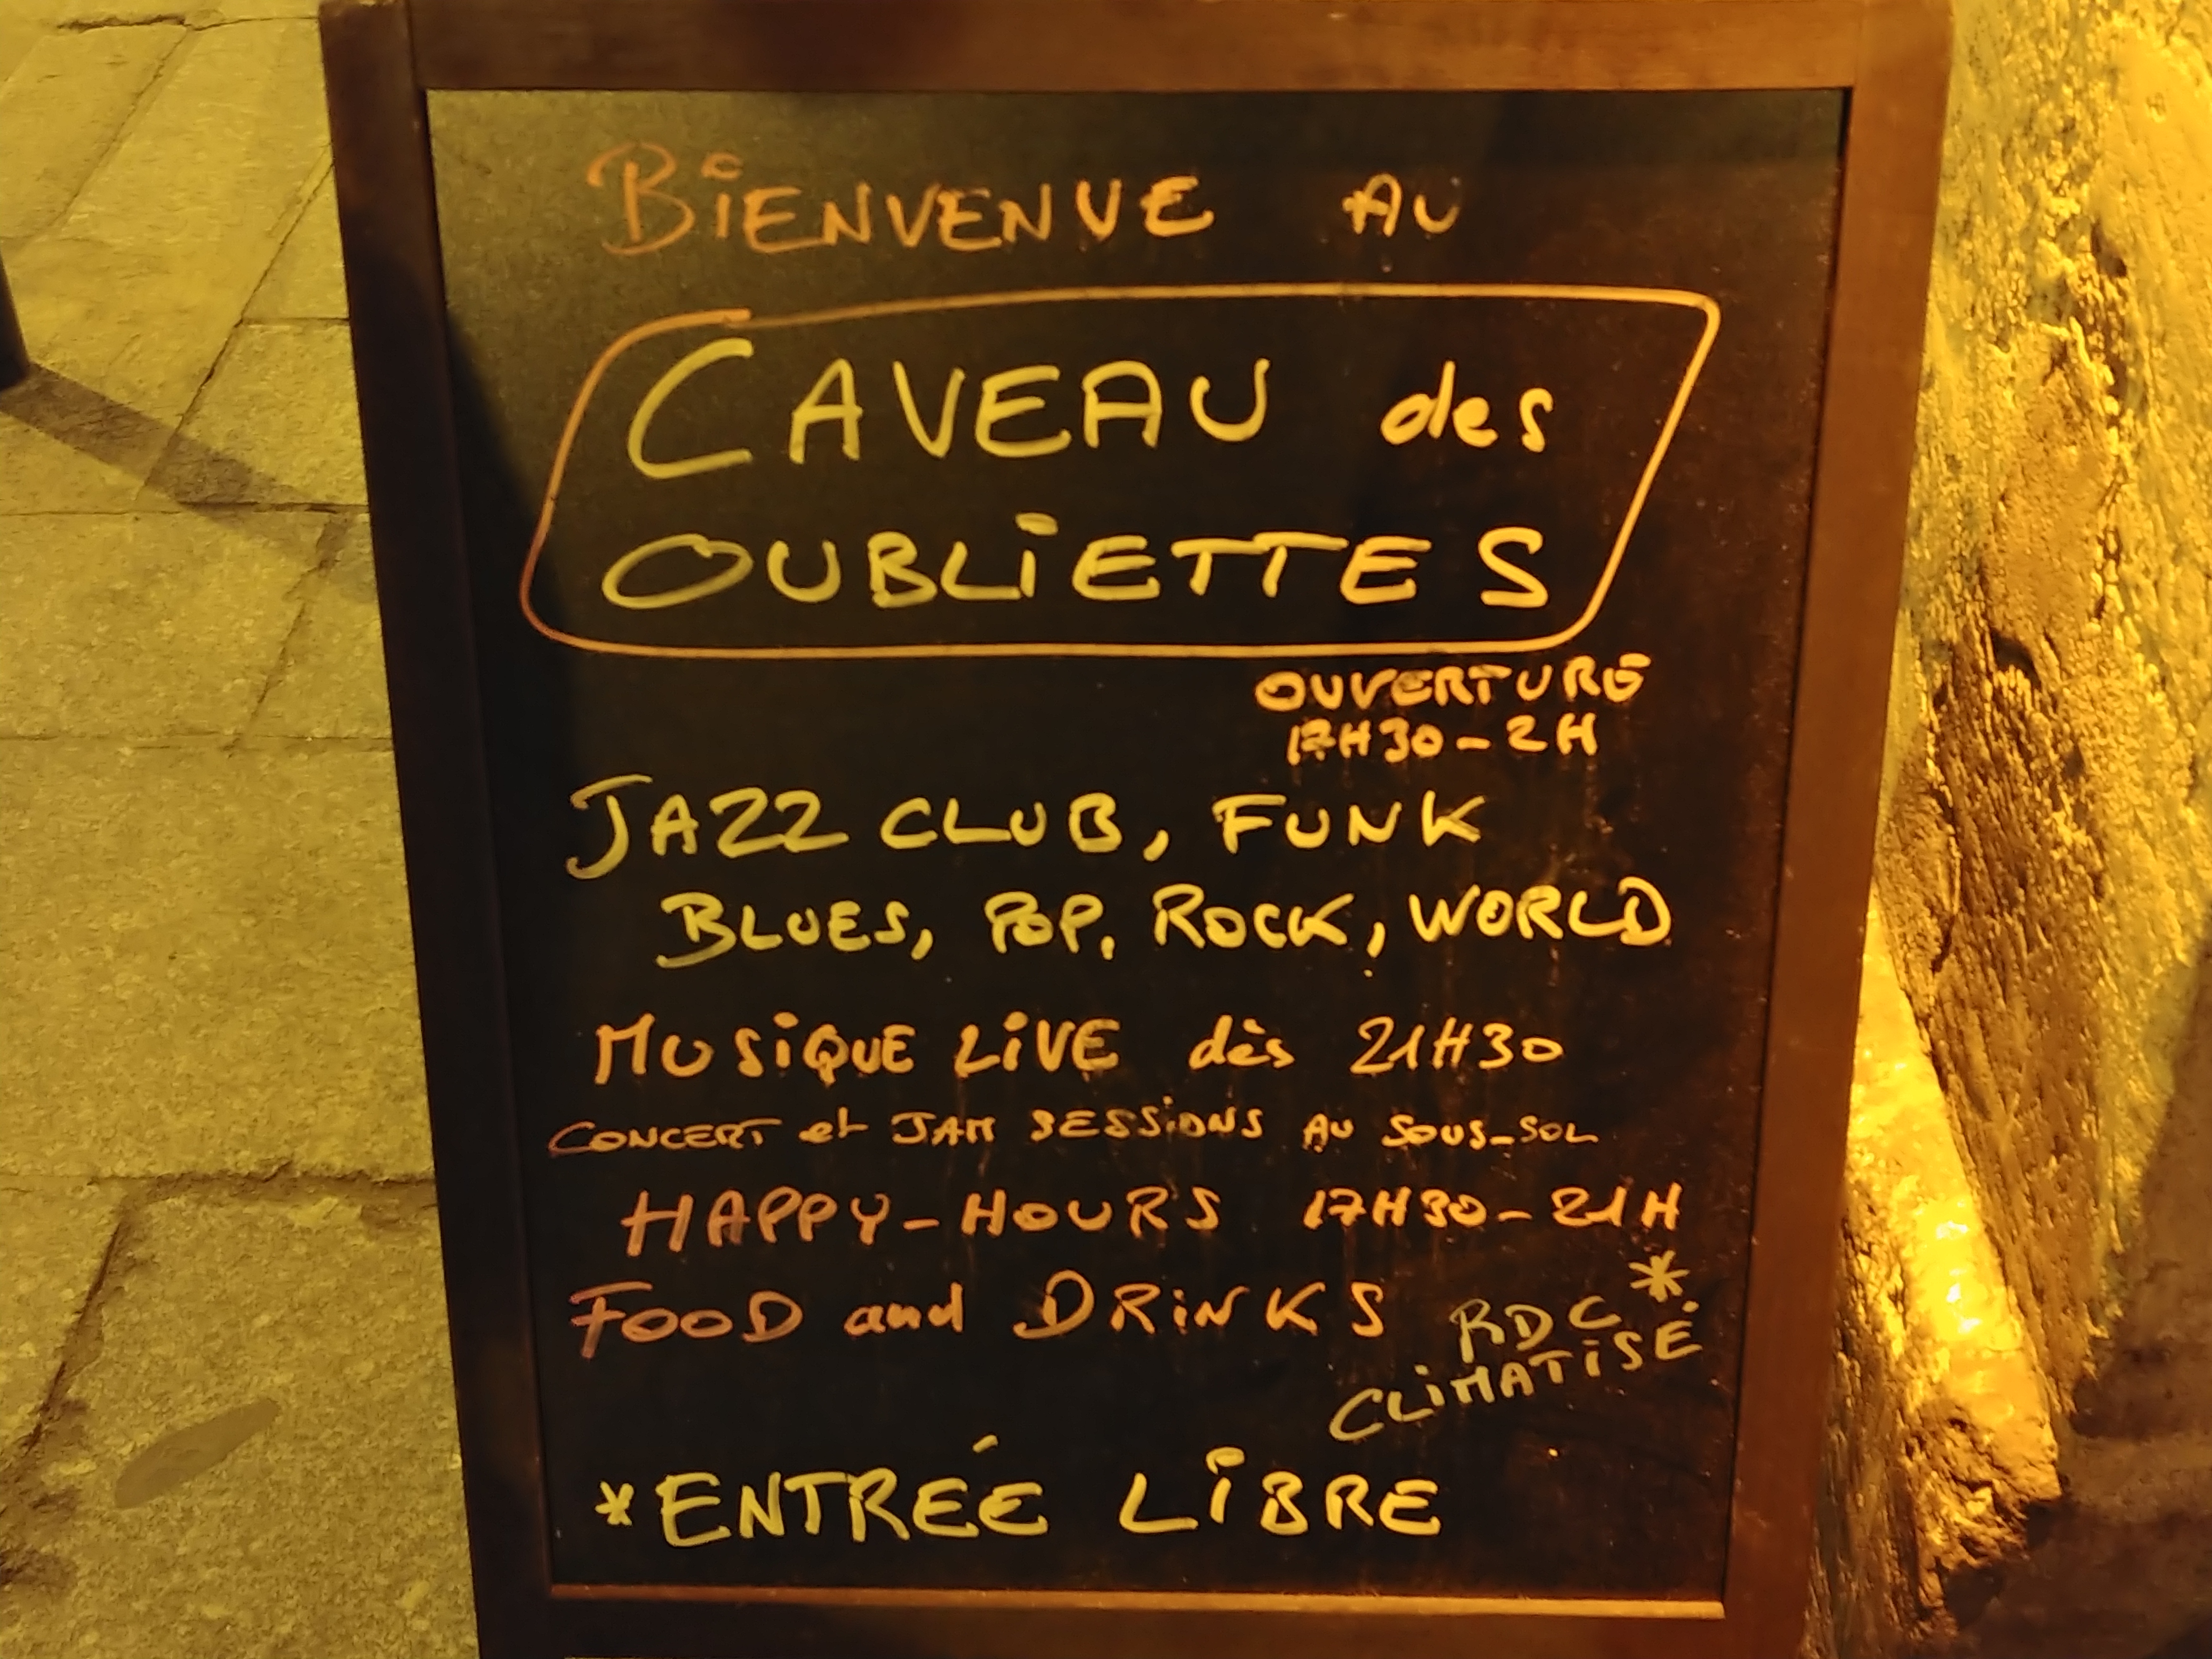 BiENVENUE AU
CAVEAU des
OUBLiETTES
OUVERTURE
17H30-2H
JAZZ CLUB, FUNK
BLUES, POP, ROCK, WORLD
MUSiQUE LiVE dès 21H30
CONCERT et JAM SESSiONS AU SOUS-SOL
HAPPY-HOURS 17H30-21H
FOOD and DRiNKS
RDC*
CLiMATiSÉ
*ENTRÉE LiBRE